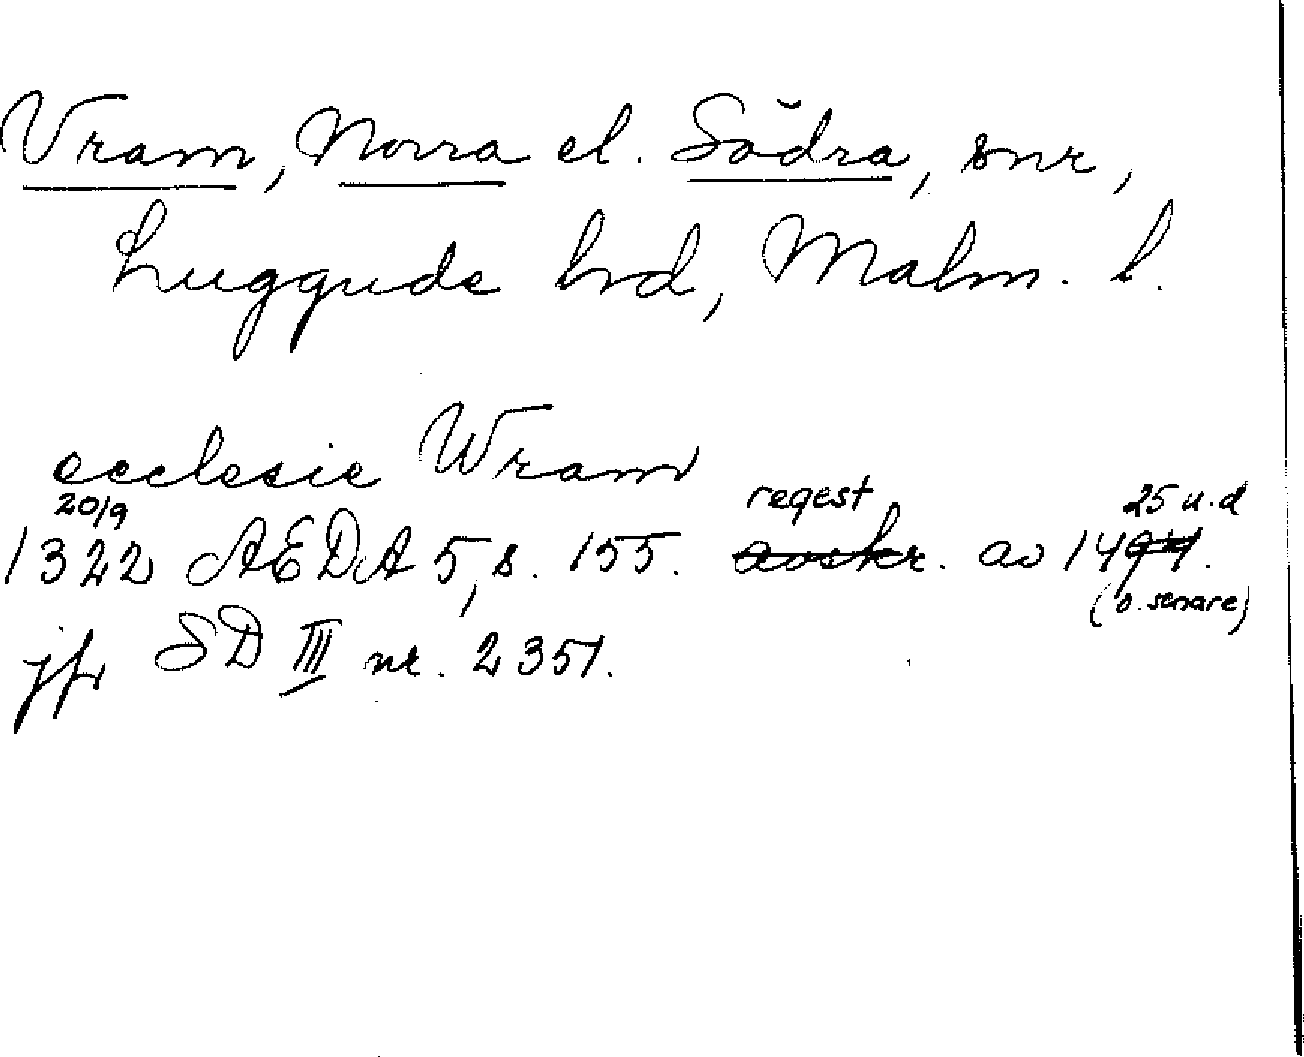 Vram, Norra el. Södra, snr,
Luggude hrd, Malm. l.
ecclesie Wram
20/9 regest 25 u.d
1322 AEDA 5, s. 155. avskr. av 1494.
(o. senare)
jfr SD III nr. 2351.